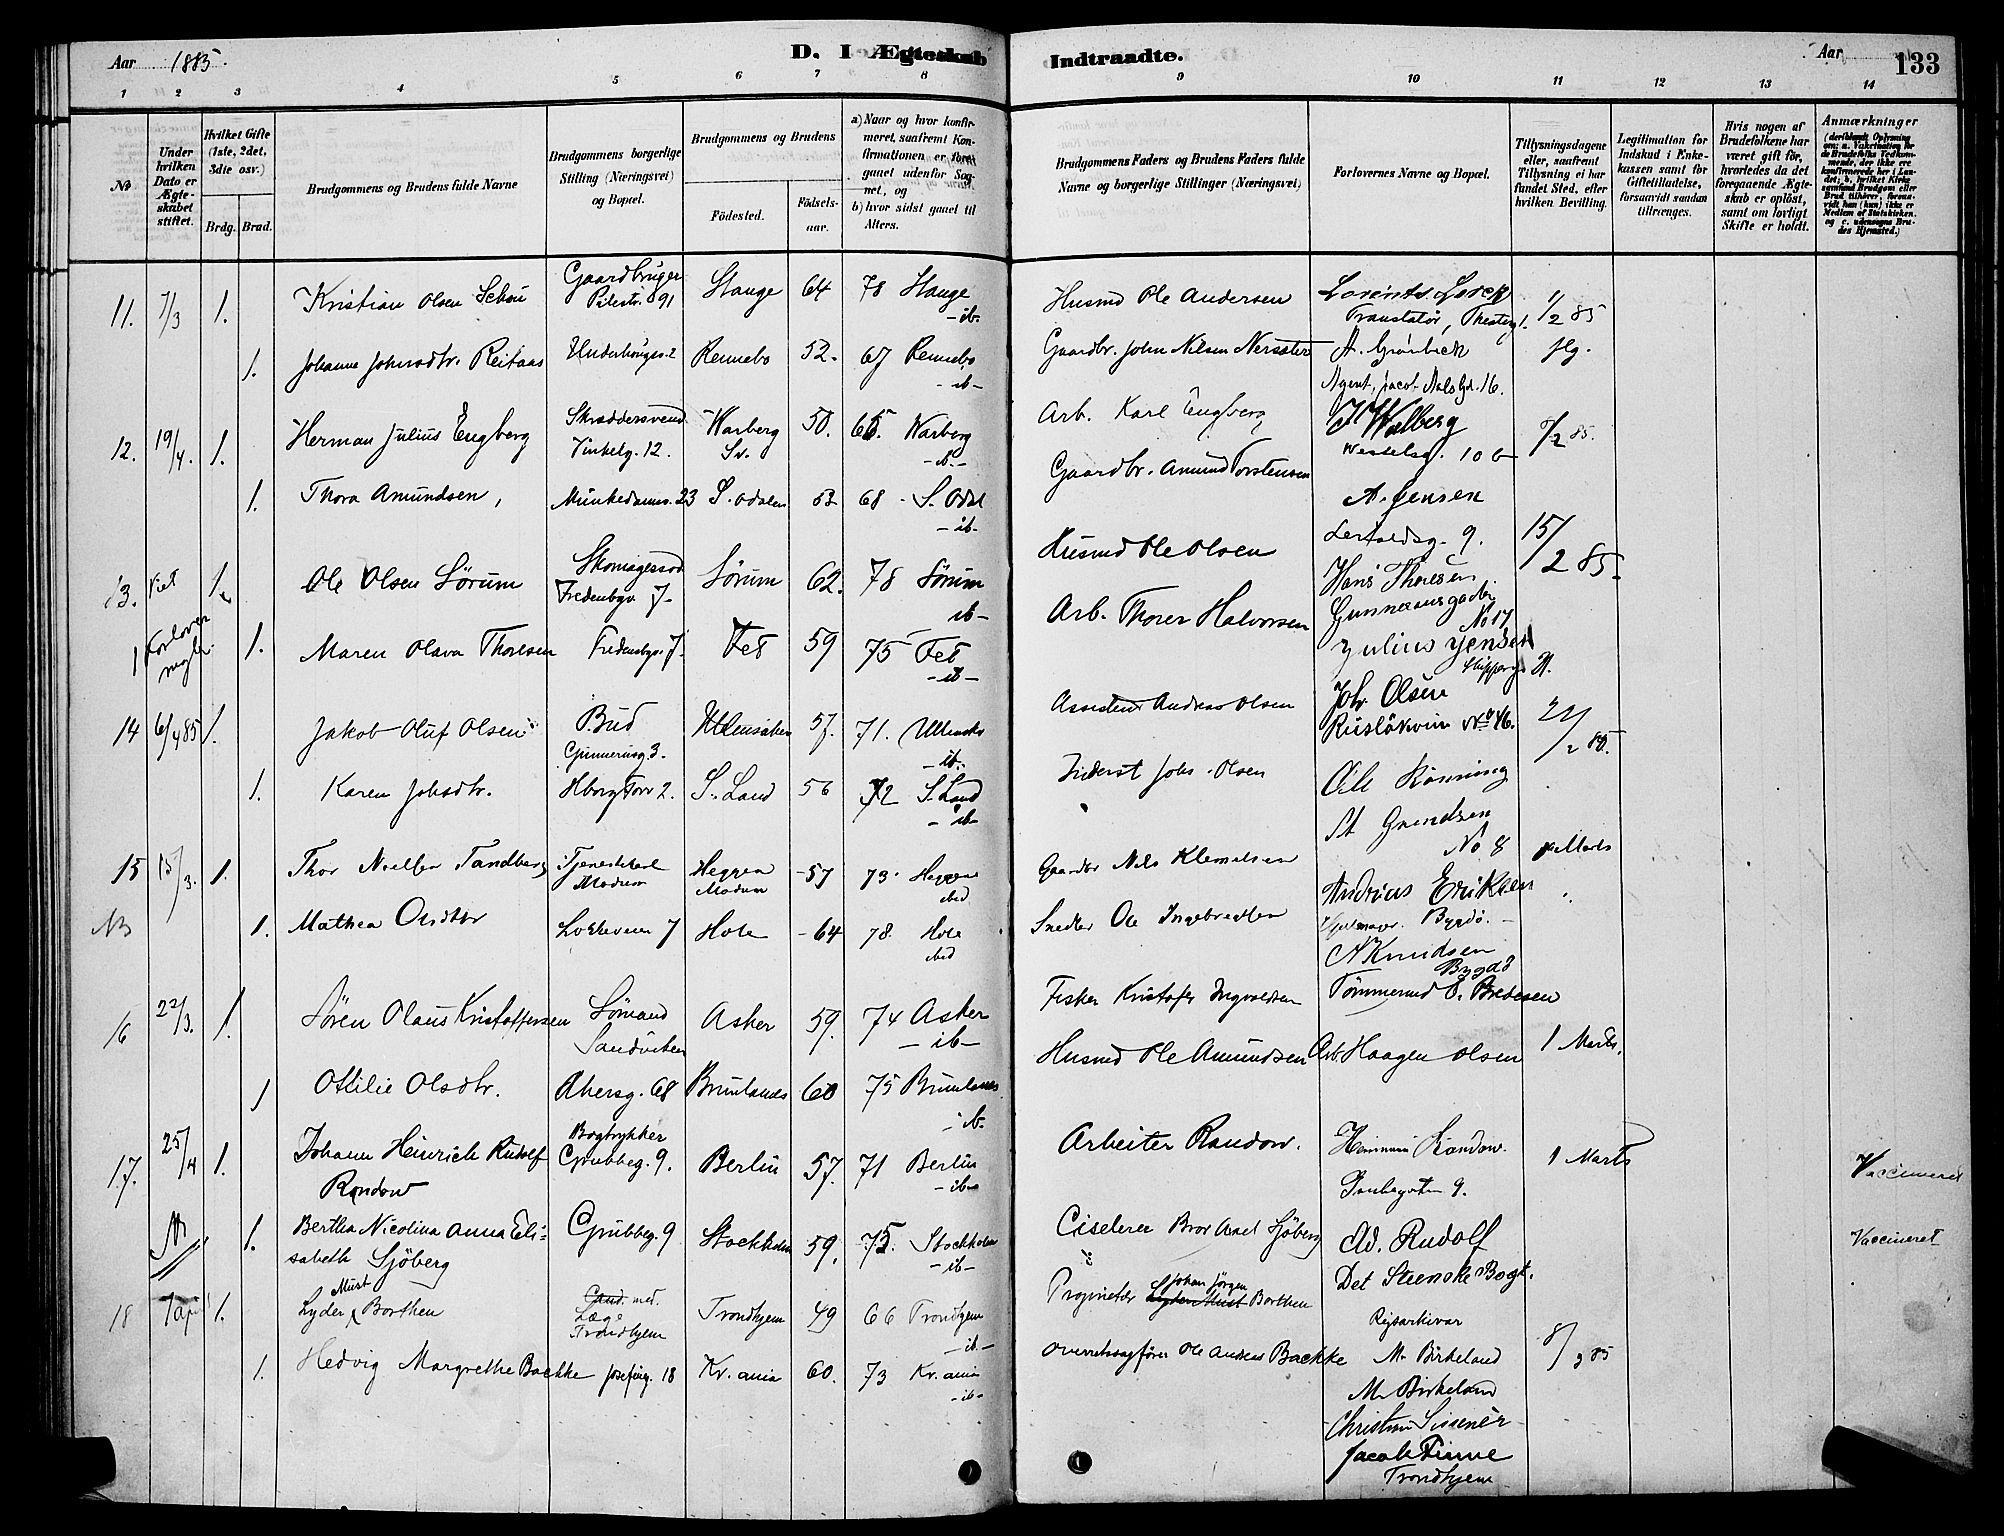 Aar 1885.
D. I Ægteskab Indtraadte.
Aar
133
1 2 3 4 5 6 7 8 9 10 11 12 13 14
No
Under hvilken Dato er Ægteskabet stiftet.
Hvilket Gifte (1ste, 2det, 3die osv.)
Brdg. Brud.
Brudgommens og Brudens fulde Navne
Brudgommens borgerlige Stilling (Næringsvei) og Bopæl.
Brudgommens og Brudens
Fødested.
Fødsels-aar.
a) Naar og hvor konfirmeret, saafremt Konfirmationen er foregaaet udenfor Sognet, og
b) hvor sidst gaaet til Alters.
Brudgommens Faders og Brudens Faders fulde Navne og borgerlige Stillinger (Næringsvei)
Forlovernes Navne og Bopæl.
Tillysningsdagene eller, saafremt Tillysning ei har fundet Sted, efter hvilken Bevilling.
Legitimation for Indskud i Enkekassen samt for Giftetilladelse, forsaavidt saadan tiltrænges.
Hvis nogen af Brudefolkene har været gift før, hvorledes da det foregaaende Ægteskab er opløst, samt om lovligt Skifte er holdt.
Anmærkninger
(deriblandt Oplysning om: a. Vakcination for de Brudefolks Vedkommende, der ikke ere konfirmerede her i Landet; b. hvilket Kirkesamfund Brudgom eller Brud tilhører, forsaavidt han (hun) ikke er Medlem af Statskirken, og c. udensogns Brudes Hjemsted.)
11. 7/3 1. Kristian Olsen Schou Gaardbruger Pilestr. 91 Stange 64 78 Stange -ib- Husmd Ole Andersen Lorents Lorck Translatør, 1/2 85
1. Johanne Johnsdtr. Reitaas Underhaugsv. 2 Rennebo 52. 67 Rennebo -ib- Gaardbr. John Nilsen A. Grönbech Agent, Jacob Aalsgd. 16. flg.
12. 19/4. 1. Herman Julius Engberg Skræddersvend Vinkelg. 12. Warberg Sv. 50. 65. Warberg -ib- Arb. Karl Engberg Walberg Wesselsg. 10 b 8/2 85.
1. Thora Amundsen, Munkedamsv. 23 S. Odalen 53 68 S. Odal -ib- Gaardbr. Amund Torstensen A. Jensen 9.
13. Viet 1. Ole Olsen Sörum Fredensbgv. 7 Sörum 62. 78 Sörum ib- Husmd Ole Olsen Hans Thoresen No 17 15/2 85.
Forlover 1. Maren Olava Thoresen Fredensbgv. 7. Fet 59 75 Fet -ib- Arb. Thorer Halvorsen Julius Jensen
14 6/4 85 1. Jakob Oluf Olsen Bud Gunnerusg. 3. Ullensaker 57. 71. Ullensaker -ib- Assistent Andreas Olsen Joh. Olsen Rusløkvein No 46. 22/2 85.
1. Karen Johsdtr. Hborg Torv 2. S. Land 56 72 S. Land -ib- Inderst Johs. Olsen Ole Rönning St Grændsen No 8
15 15/3. 1. Thor Nielsen Tandberg Tjenestekarl Modum Heggen Modum 57 73. Heggen ibid Gaardbr Nils Klemetsen Andreas Eriksen Bygdö. Marts
NB 1. Mathea Olsdtr Løkkeveien 7 Hole 64 78. Hole ibid Ole Ingebretsen A Knudsen Bygdö
16 22/3. 1. Sören Olaus Kristoffersen Sömand Sandviken Asker 59. 74 Asker -ib- Fisker Kristofer Ingvaldsen Tömmermd E. Bredesen 1 Marts.
1 Ottilie Olsdtr. Akersg. 68 Brunlanes 60 75 Brunlanes -ib- Husmd Ole Amundsen Arb Haagen Olsen
17. 25/4 1. Johann Heinrich Rudolf Randow Bogtrykker Grubbeg. 9. Berlin 57. 71 Berlin -ib- Arbeiter Randow. Randow. 9. 1 Marts Vaccineret
1. Bertha Nicolina Anna Elisabeth Sjöberg Grubbeg. 9 Stockholm 59. 75. Stockholm -ib- Ciselerer Bror Axel Sjöberg Ad. Rudolf Det Steenske Bogt. Vaccineret
18 1. Lyder Must Borthen Cand. med. Læge Trondhjem Trondhjem 49 66 Trondhjem -ib- Proprietær Lyder Must Johan Jörgen Borthen Rigsarkivar M. Birkeland 8/3 85
1. Hedvig Margrethe Backke Josefineg. 18 Kr.ania 60. 73 Kr.ania -ib- Overretssagförer Ole Andreas Backke M. Birkeland
Christian Sissenèr
Jacob Finne
Trondhjem